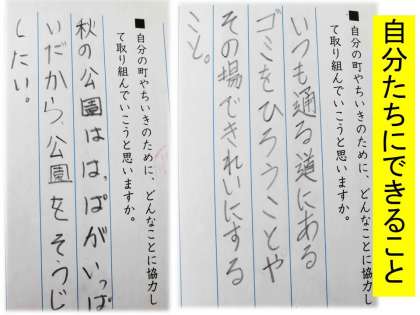 自分たちにできること
■自分の町やちいきのために、どんなことに協力し
て取り組んでいこうと思いますか。
いつも通る道にある
ゴミをひろうことや
その場できれいにする
こと。
■自分の町やちいきのために、どんなことに協力し
て取り組んでいこうと思いますか。
秋の公園は、はっぱがいっぱ
いだから、公園をそうじ
したい。